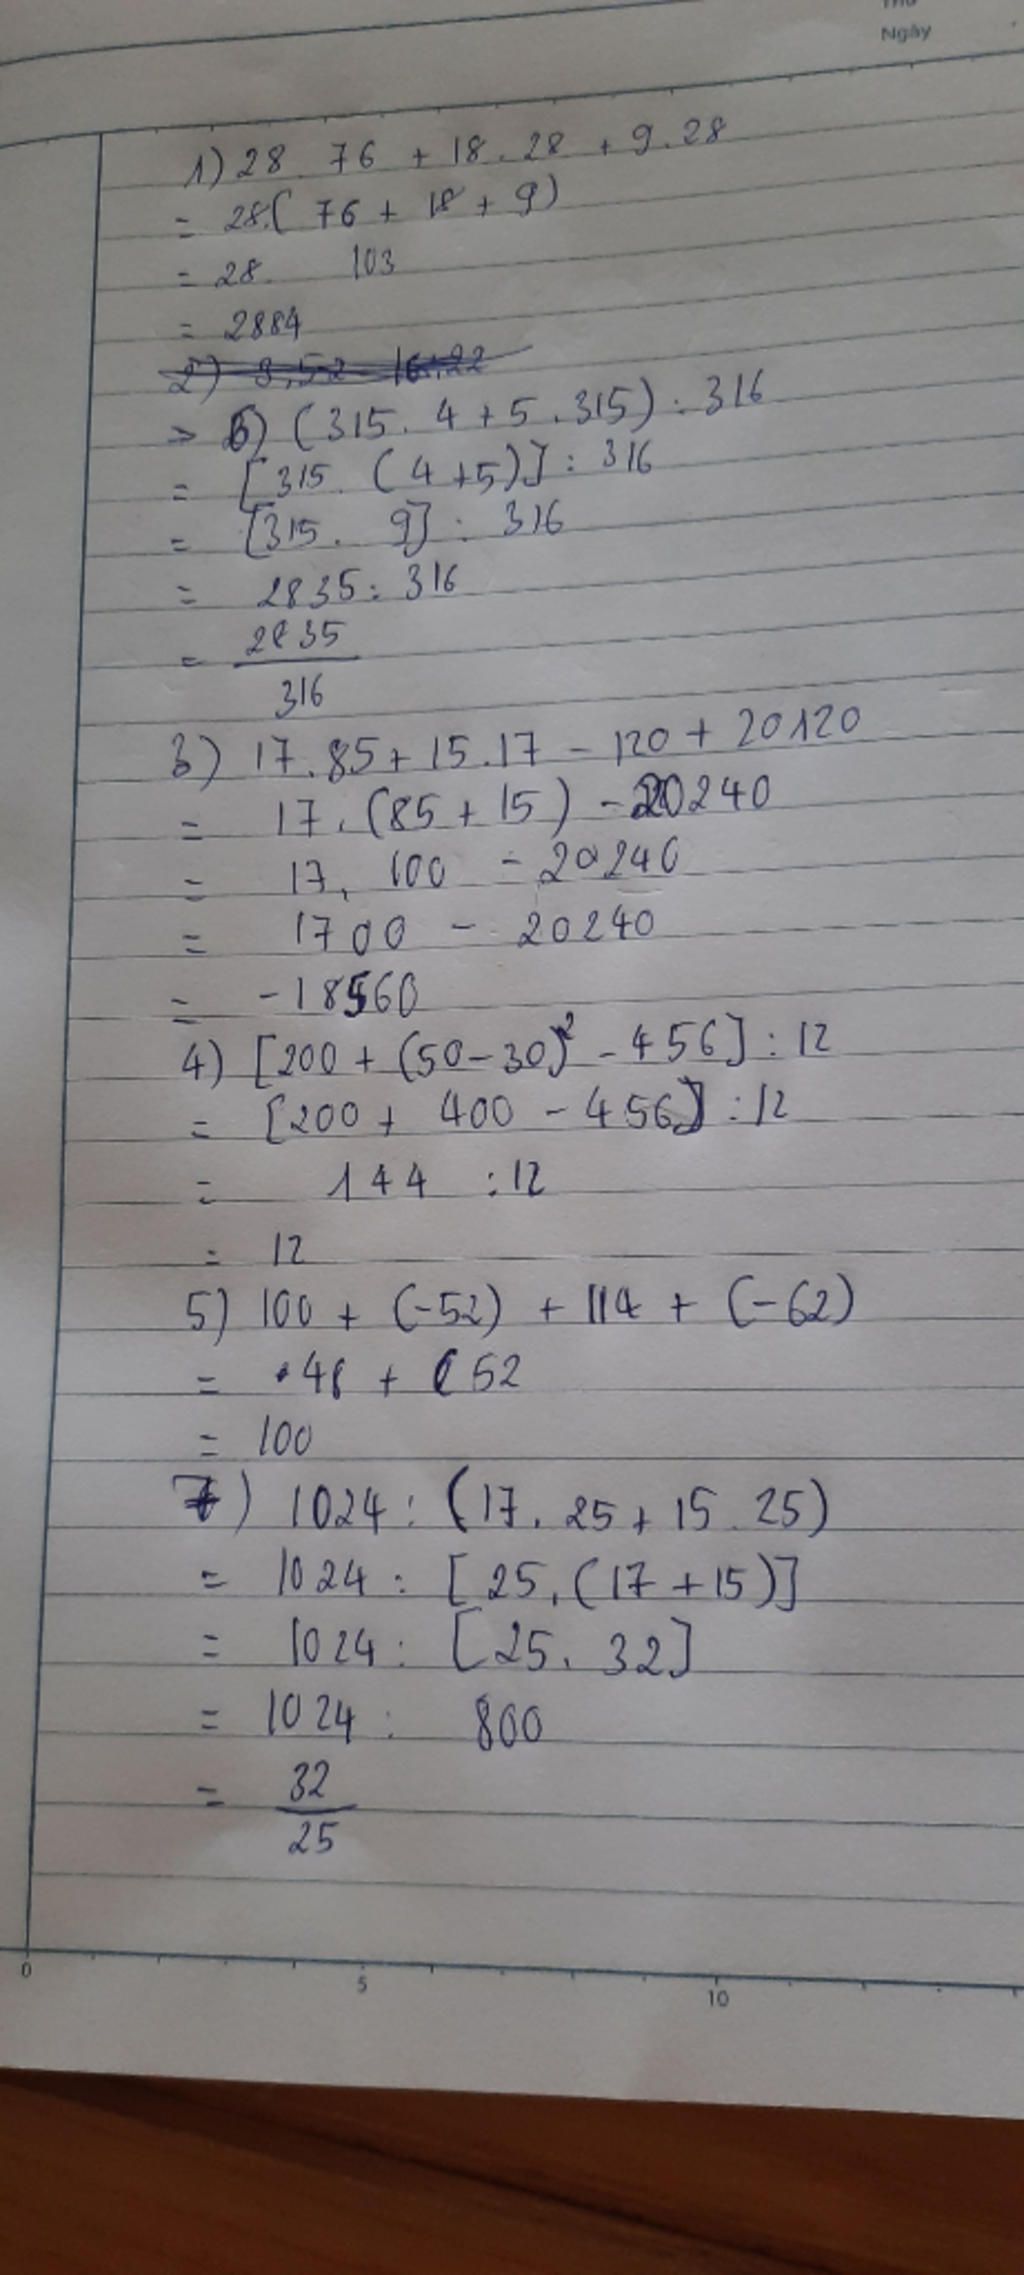 Thứ
Ngày
1) 28 . 76 + 18 . 28 + 9 . 28
= 28.( 76 + 18 + 9)
= 28 . 103
= 2884
=> 6) (315 . 4 + 5 . 315) : 316
= [315 . (4 + 5)] : 316
= [315 . 9] : 316
= 2835 : 316
= 2835
316
3) 17 . 85 + 15 . 17 - 120 + 20120
= 17 . (85 + 15) - 20240
= 17 . 100 - 20240
= 1700 - 20240
= -18560
4) [200 + (50 - 30)² - 456] : 12
= [200 + 400 - 456] : 12
= 144 : 12
= 12
5) 100 + (-52) + 114 + (-62)
= 48 + 52
= 100
7) 1024 : (17 . 25 + 15 . 25)
= 1024 : [25 . (17 + 15)]
= 1024 : [25 . 32]
= 1024 : 800
= 32
25
0 5 10